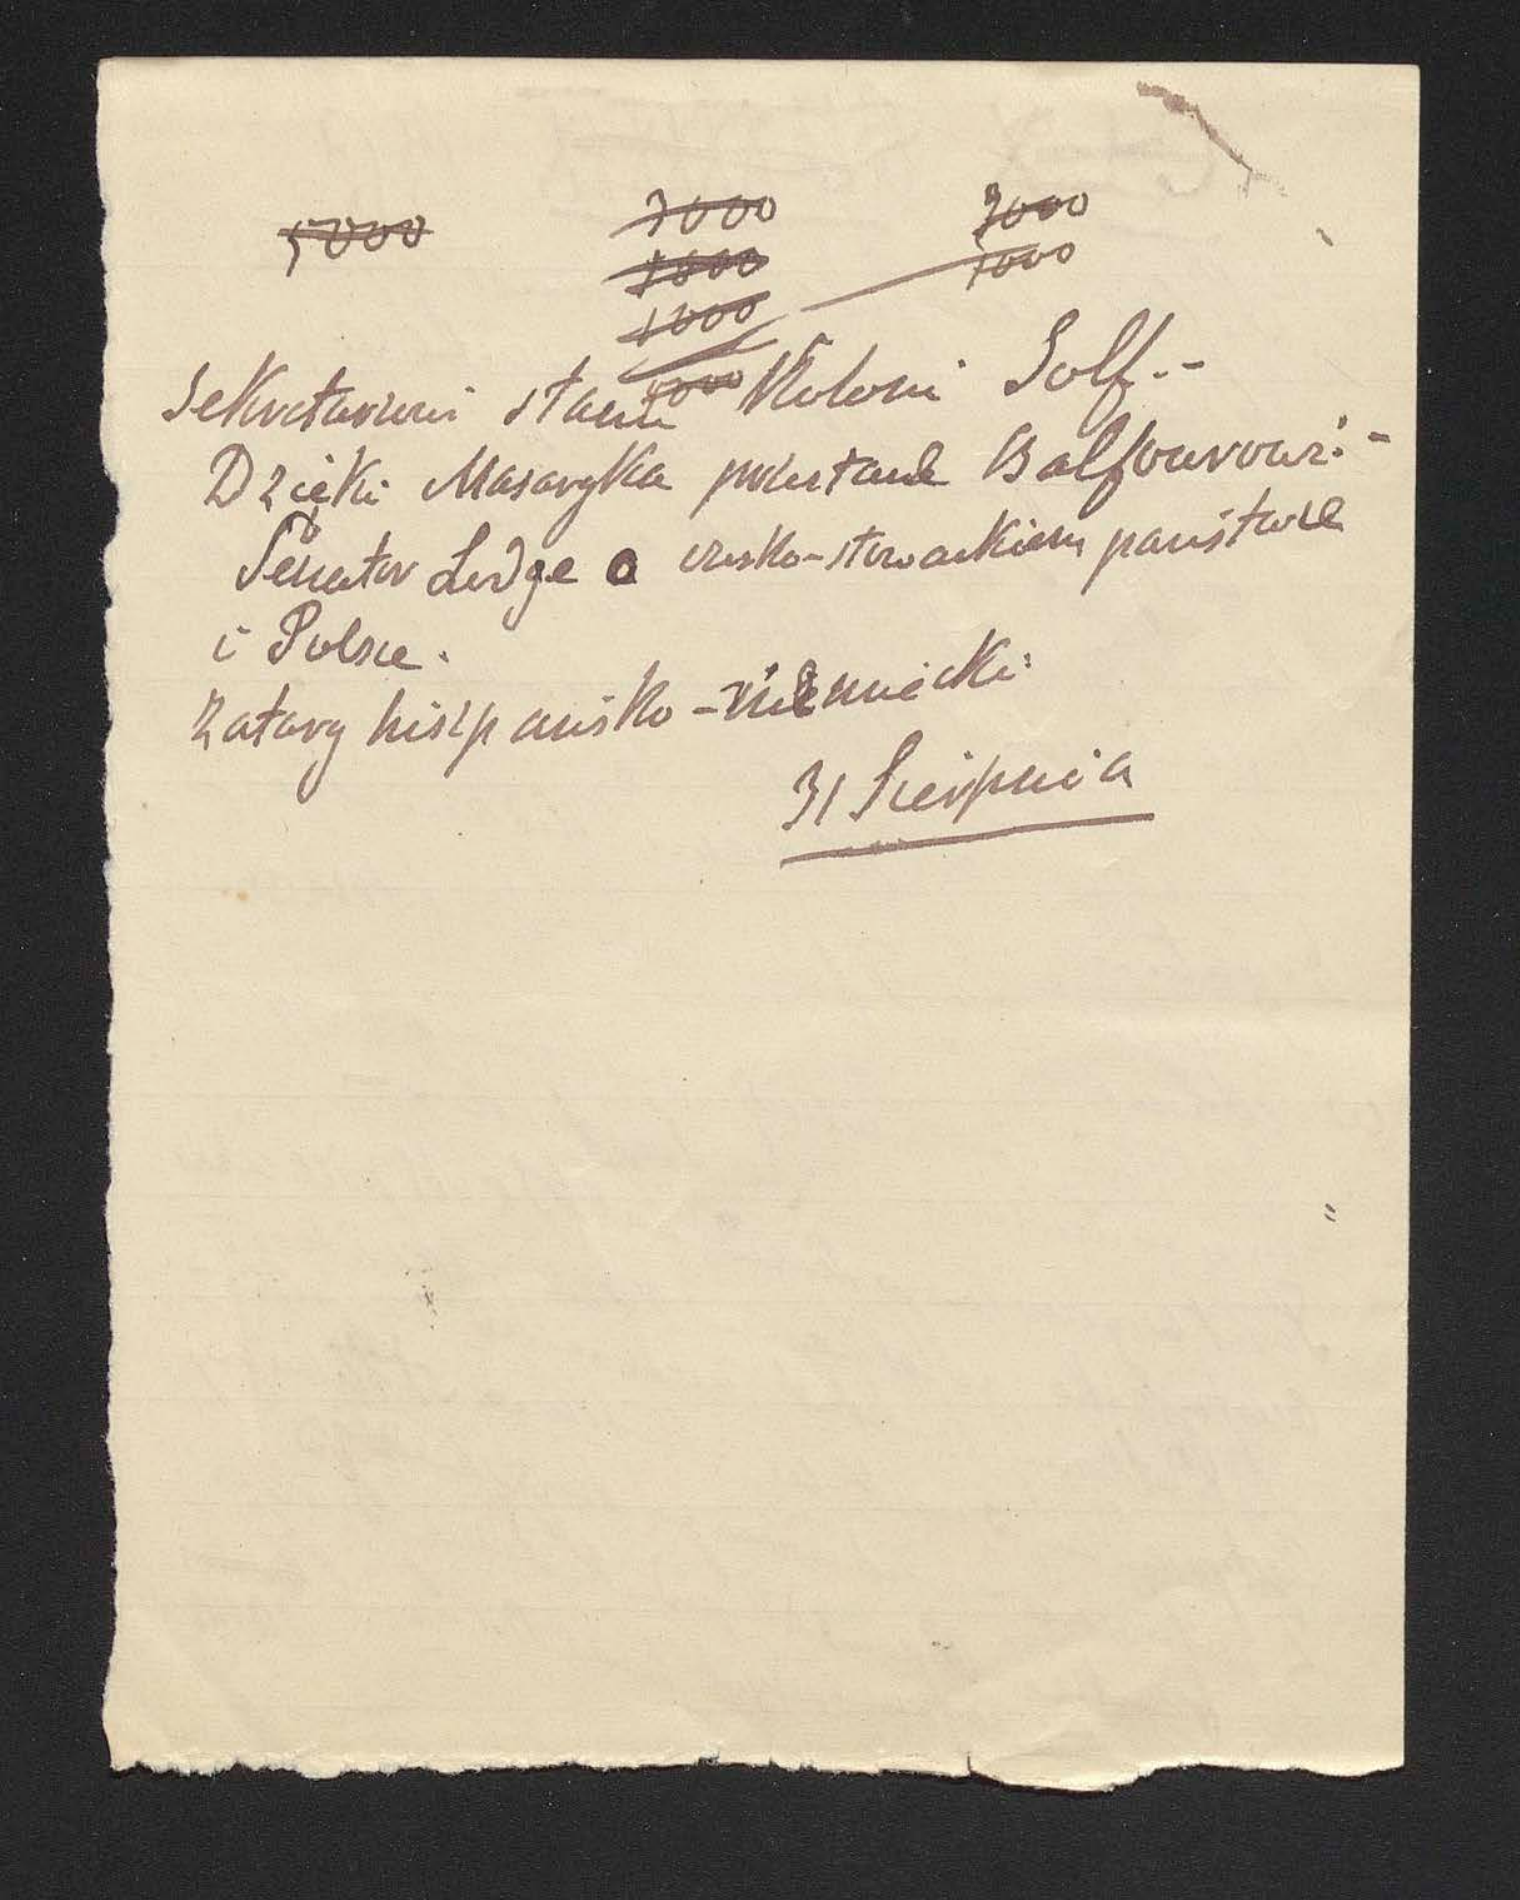 5000 7000 7000
1000
1000
Sekretarzem stanu Kolonii Solf.-
Dzięki Masaryka przesłane Balfourowi.-
Senator Lodge o czesko-słowackiem państwie
i Polsce.
Zatarg hiszpańsko-niemiecki.
31 Sierpnia